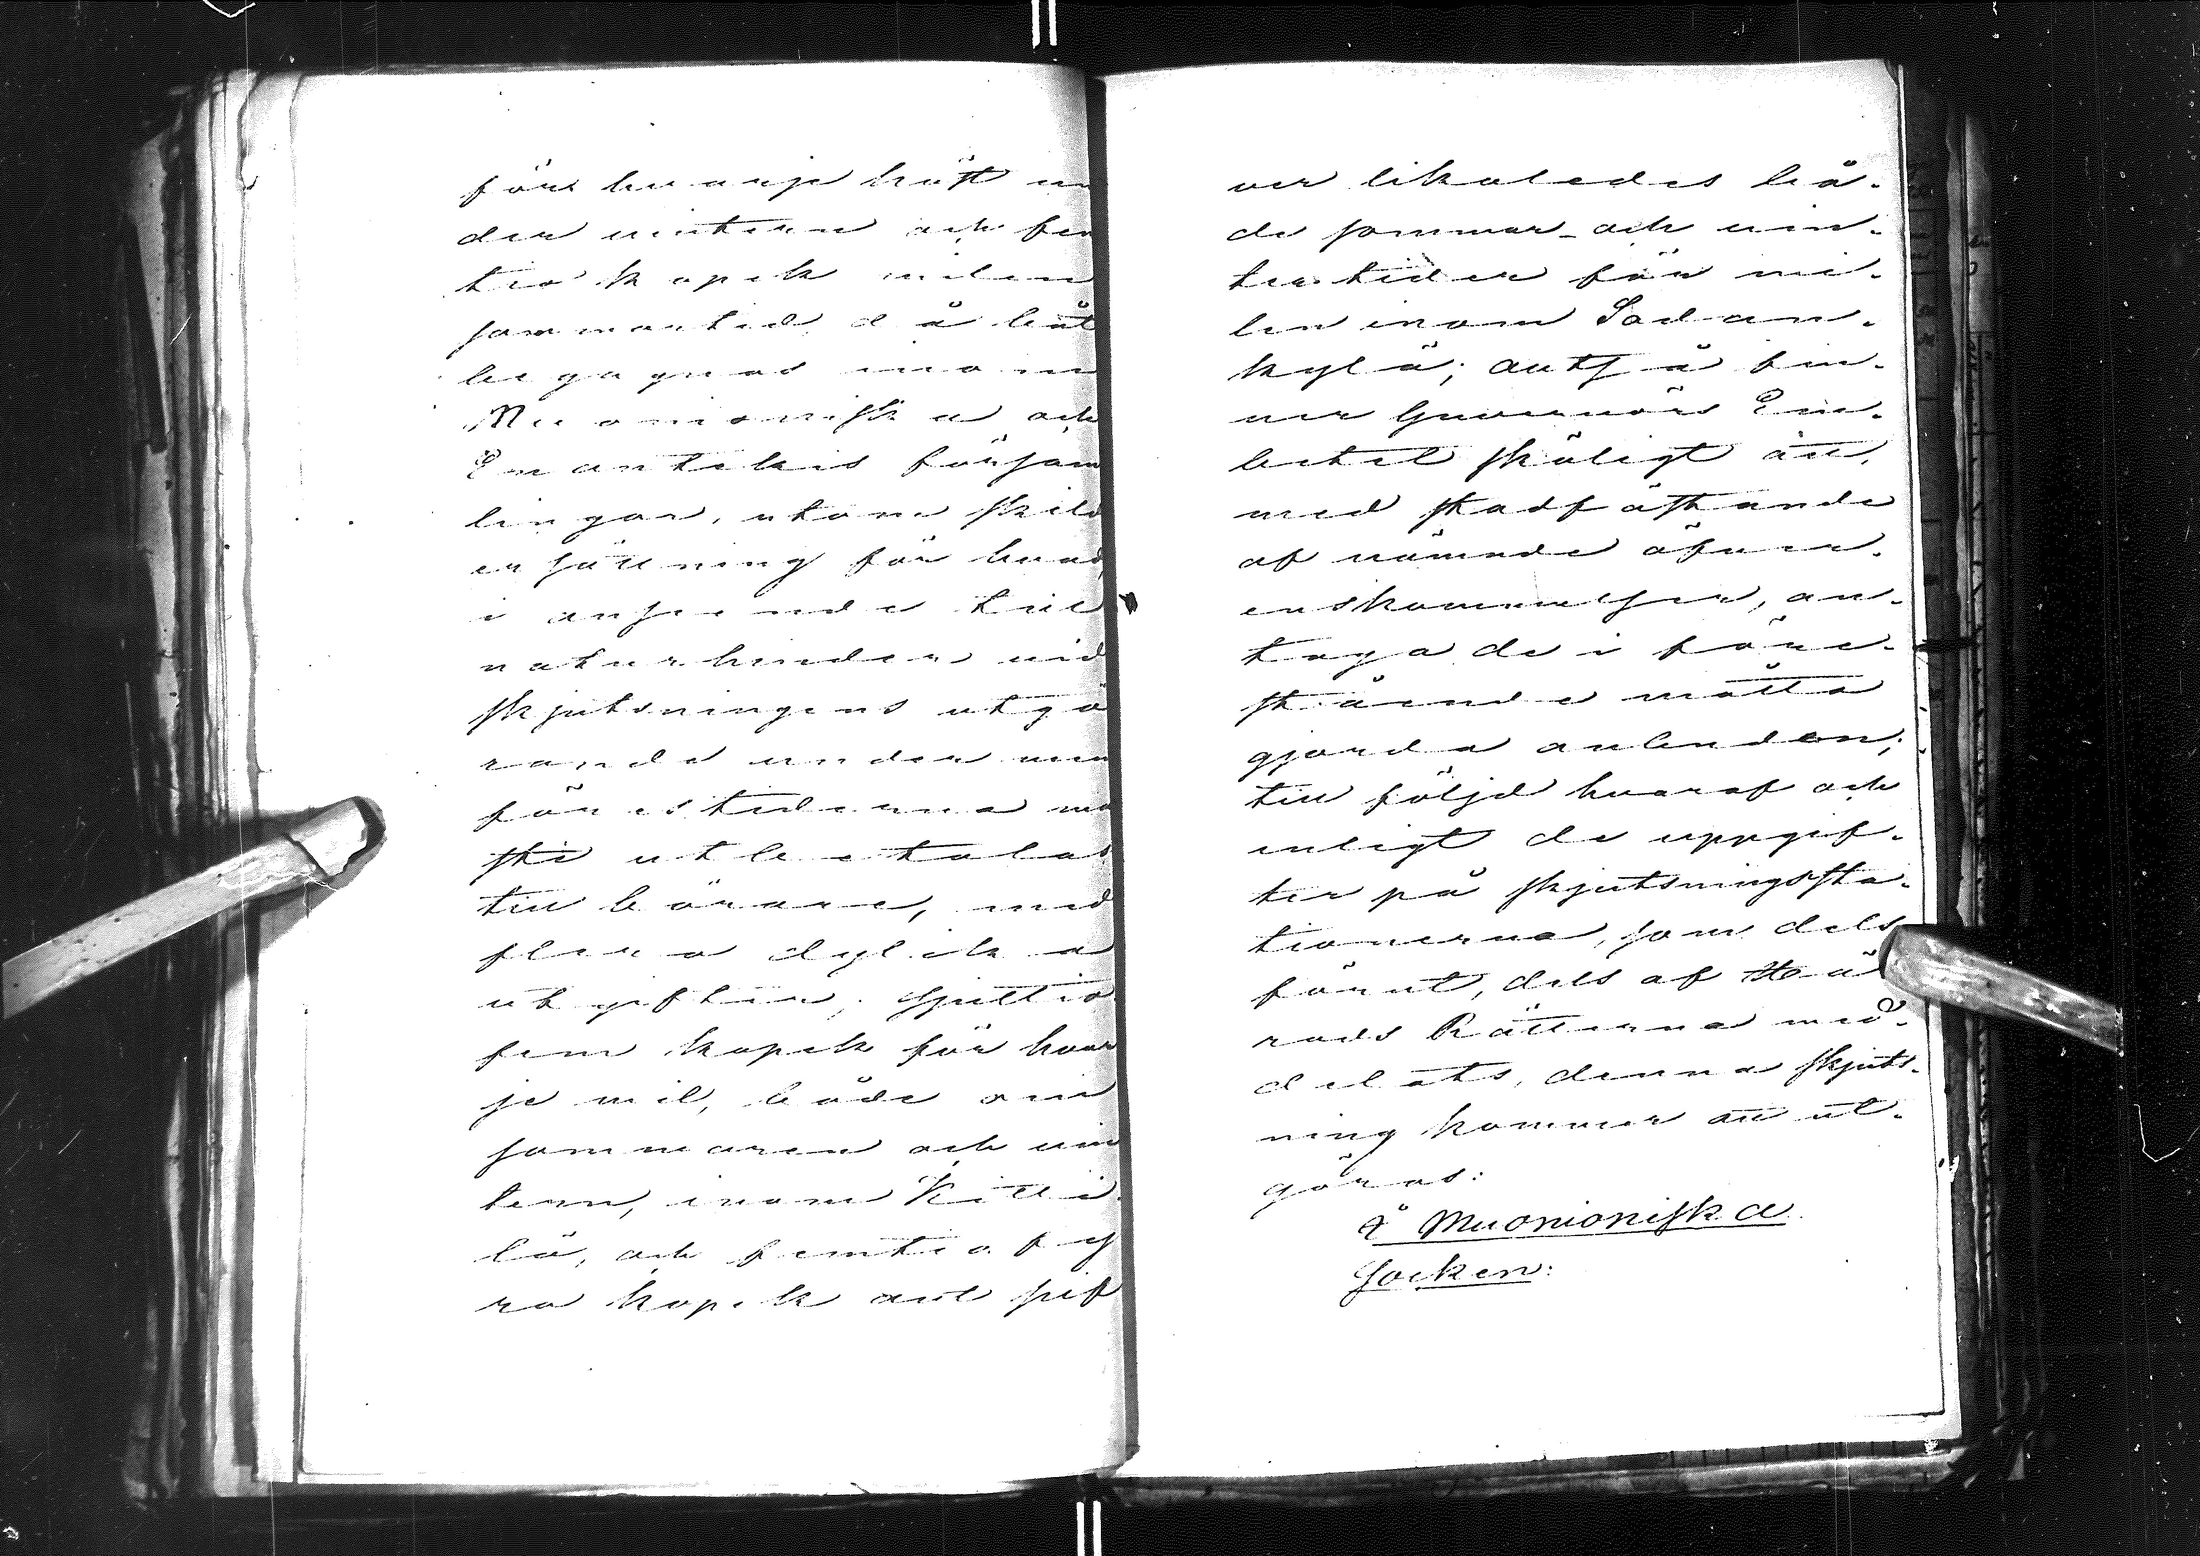 före hvarje häst un
der vintern och fem
tio kopek milen
sommartid då båt
begagnas inom
Muonioniska och
Enontekis försam
lingar, utom skild
ersättning för hvad,
i anseende till
naturhinder vid
skjutsningens utgö
rande under men
föres tiderna må
ste utbetalas
till bärare, med
flera dylika
utgifter; sjuttio
fem kopek för hvar
je mil, både om
sommaren och vin
tern, inom Kitti
lä, och femtio fy
ra kopek dito silf
ver likaledes bå-
de sommar- och vin-
tertider för mi-
len inom Sodan-
kylä; altså fin-
ner Guvernörs Em-
betet skäligt att,
med stadfästande
af nämnde öfver-
enskommelser, an-
taga de i före-
stående måtto
gjorda anbuden;
till följd hvaraf och
enligt de uppgif-
ter på skjutsningssta-
tionerna, som dels
förut, dels af Hä
rads Rätterna med-
delats, denna skjuts-
ning kommer att ut-
göras:
I Muonioniska
Socken: